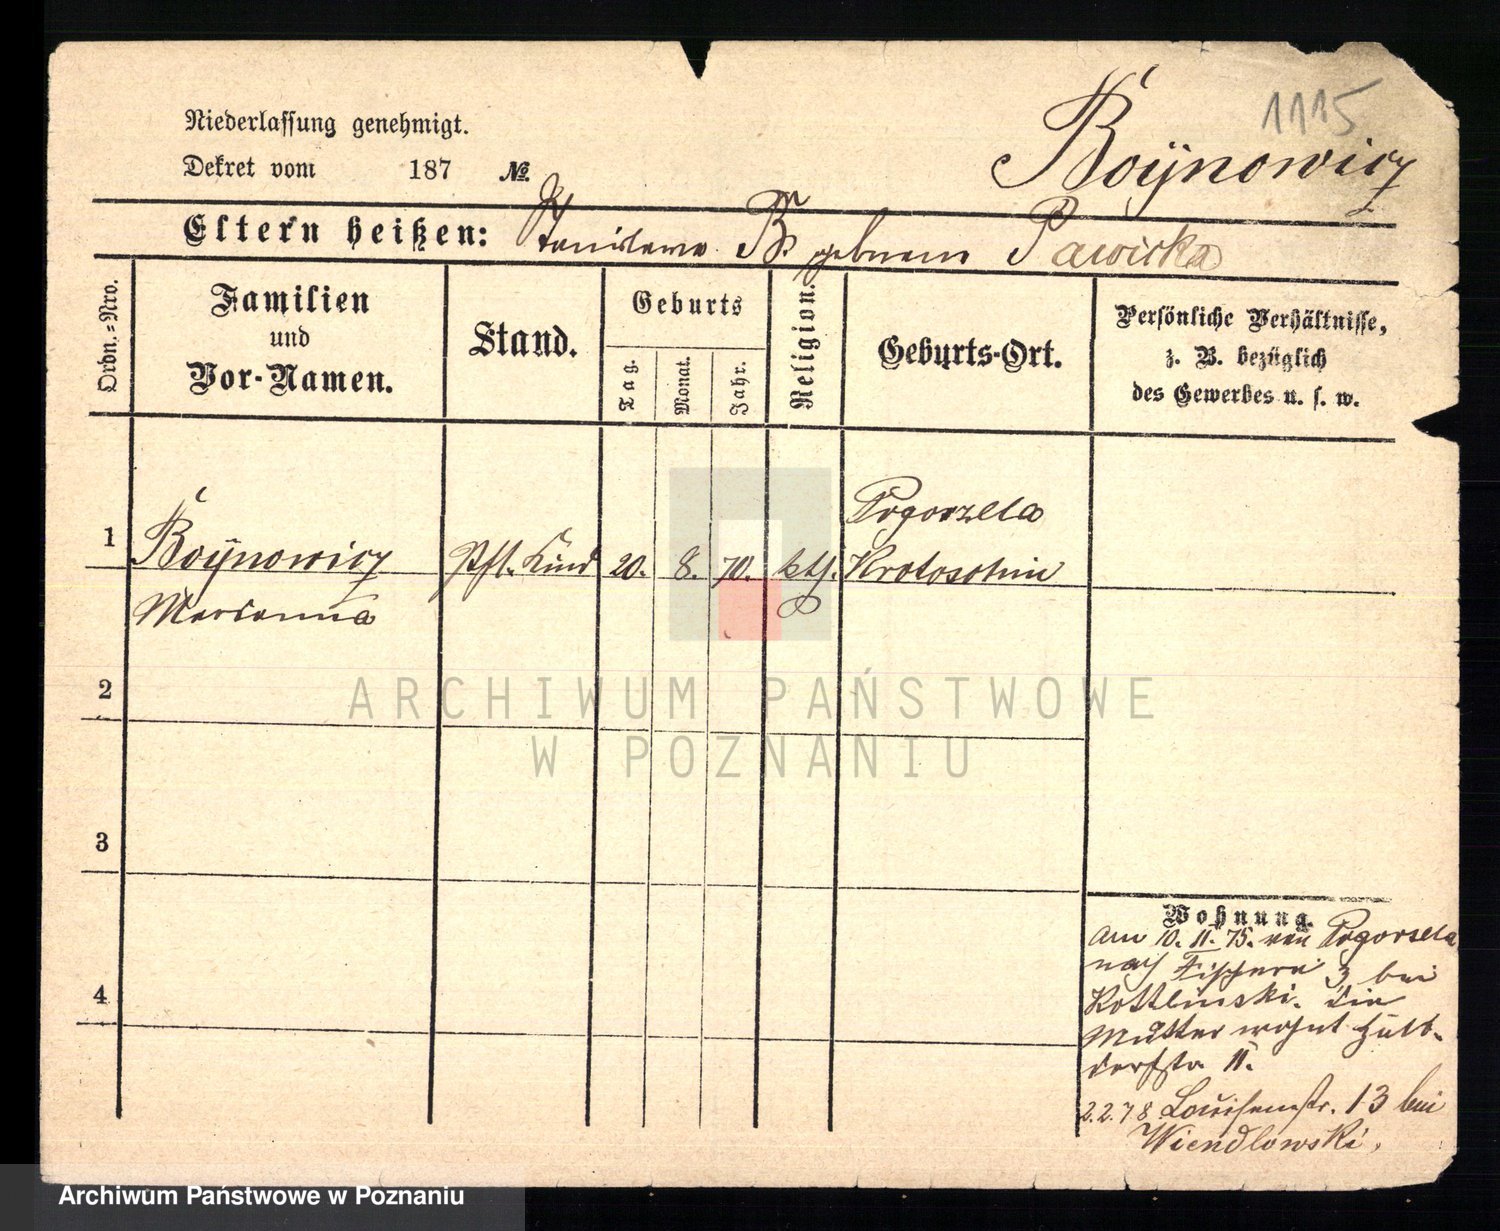 1115
Niederlassung genehmigt.
Boÿnowicz
Dekret vom 187 №.
Eltern heißen: Stanislawa B. geborene Pawicka
Ordn.-Nro.
Familien
und
Vor-Namen.
Stand.
Geburts
Tag.
Monat.
Jahr.
Religion.
Geburts-Ort.
Persönliche Verhältnisse,
z. B. bezüglich
des Gewerbes u. s. w.
Pogorzela
1 Boÿnowicz Pfl. Kind 20. 8. 70. kth. Krotoschin
Marianna
2
3
4
Wohnung.
Am 10. 11. 75. von Pogorzela
nach Fischerei 3 bei
Kottlinski. die
Mutter wohnt Halb-
dorfstr. 11.
2.2.78 Louisenstr. 13 bei
Wiendlowski.
ARCHIWUM PAŃSTWOWE
W POZNANIU
Archiwum Państwowe w Poznaniu